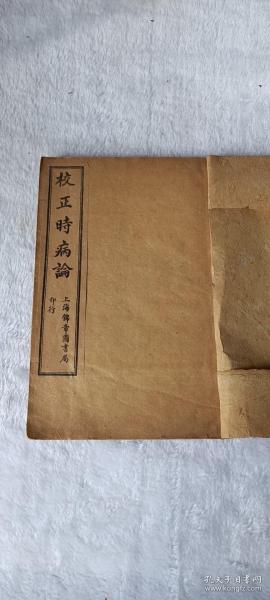 校正時病論
上海錦章圖書局
印行
孔夫子旧书网